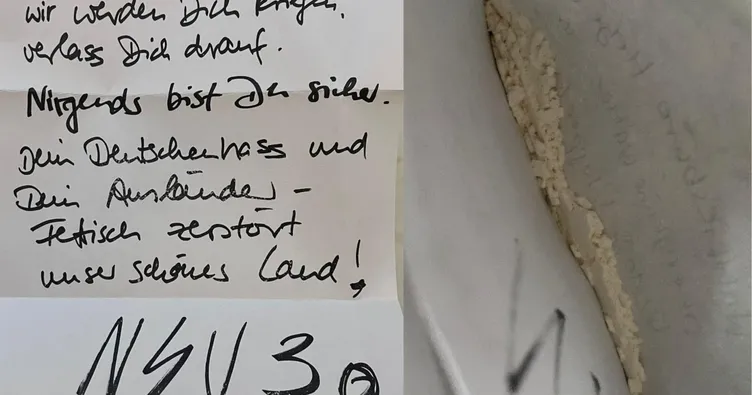 wir werden Dich kriegen,
verlass Dich drauf.
Nirgends bist Du sicher.
Dein Deutschenhass und
Dein Ausländer-
Fetisch zerstört
unser schönes Land!
NSU 3.0